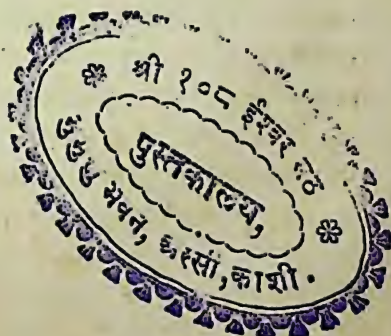 श्री १०८ ईश्वर मठ
पुस्तकालय,
भवन, अस्सी,काशी.